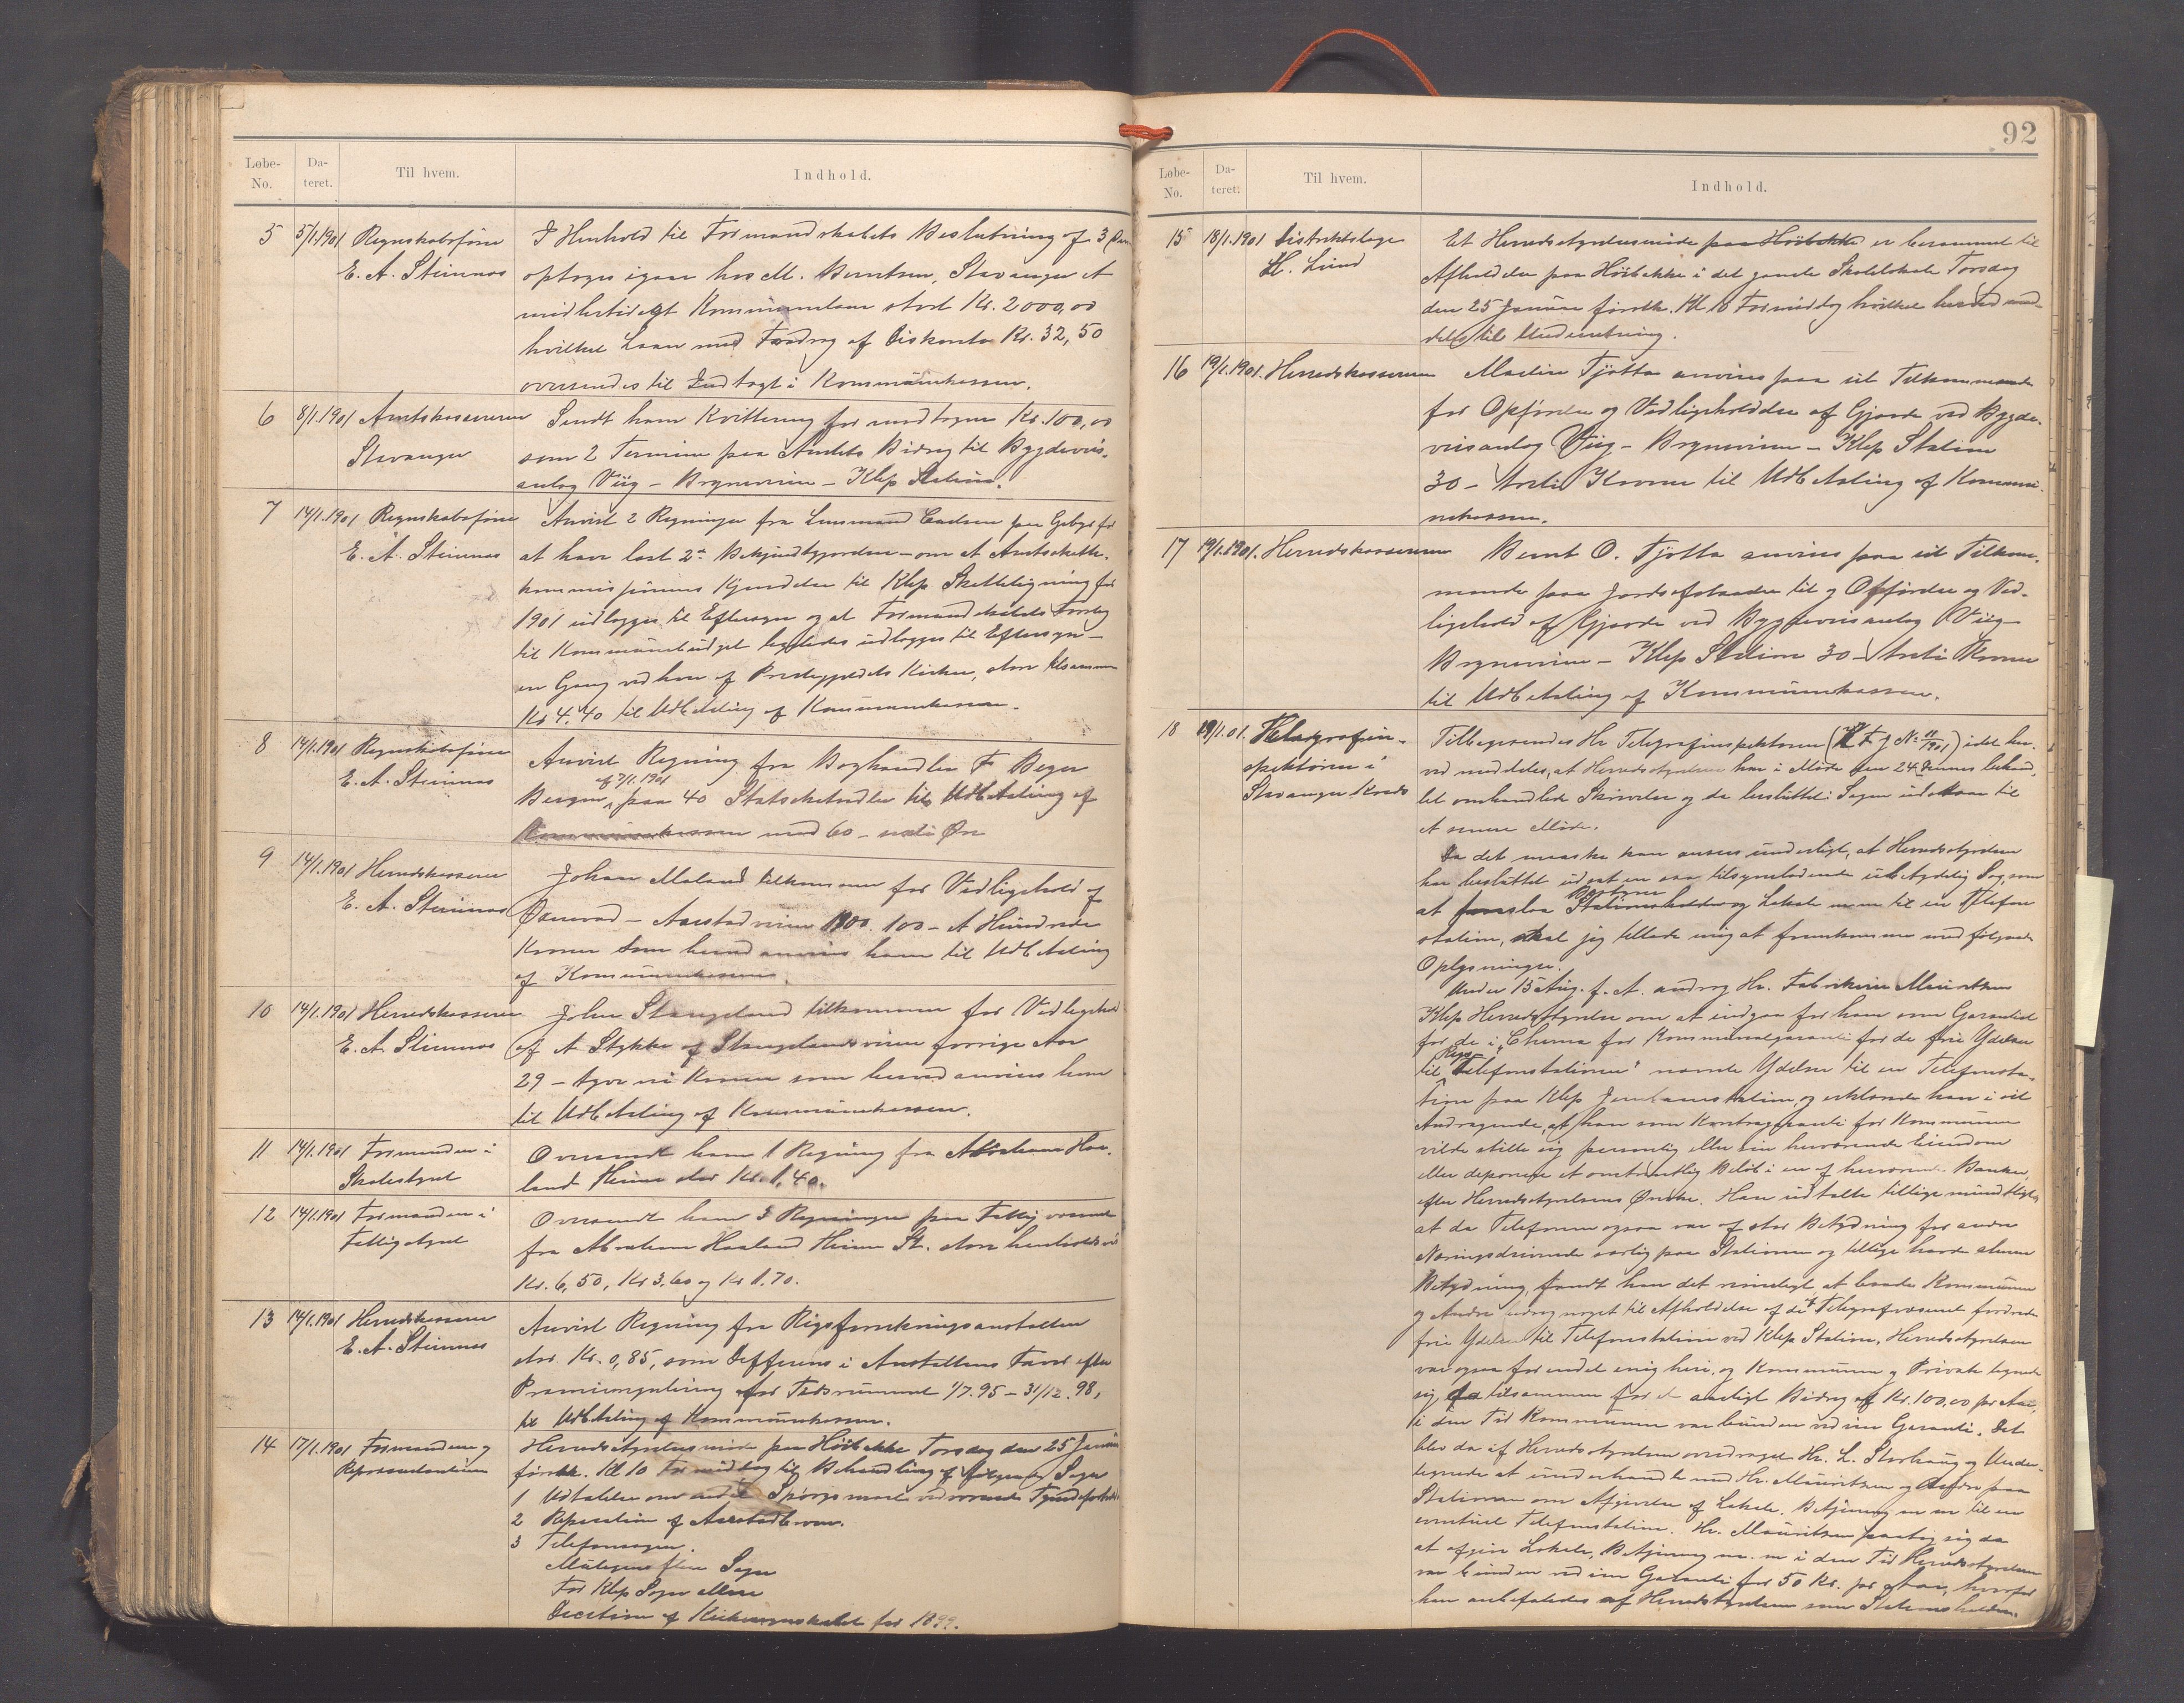 Løbe-No. Da-teret. Til hvem. Indhold.
5 5/1.1901 Regnskabsfører E. A. Steinnes
I Henhold til Formandskabets Beslutning af 3 dm
optoges igaar hos M. Berntsen, Stavanger et
midlertidigt Kommunelaan stort Kr. 2000,00
hvilket Laan med Fradrag af Diskonto Kr. 32,50
oversendes til Indtægt i Kommunekassen.
6 8/1.1901 Amtskassereren Stavanger
Sendt ham Kvittering for modtagne Kr. 100,00
som 2 Termin paa Amtets Bidrag til Bygdeveis-
anlæg Viig - Bryneveien - Klep Station.
7 14/1.1901 Regnskabsfører E. A. Steinnes
Anvist 2 Regninger fra Lensmand Carlsen paa Gebyr for
at have læst 2de Bekjendtgjørelser - om at Amtsskatte-
kommissionens Kjendelse til Klep Skatteligning for
1901 udlægges til Eftersyn og at Formandskabets Forslag
til Kommunebudget ligeledes udlægges til Eftersyn -
en Gang ved hver af Prestegjeldets Kirker, stor tilsammen
Kr 4.40 til Udbetaling af Kommunekassen.
8 14/1.1901 Regnskabsfører E. A. Steinnes
Anvist Regning fra Boghandler F Beyer
Bergen af 7/1.1901 paa 40 Statsskatsedler til Udbetaling af
Kommunekassen med 60 - seksti Øre
9 14/1.1901 Herredskasserer E. A. Steinnes
Johan Moland tilkommer for Vedligehold af
Øxnevad - Aarstadveien 1900. 100 - Et Hundrede
Kroner som herved anvises ham til Udbetaling
af Kommunekassen
10 14/1.1901 Herredskasserer E. A. Steinnes
John Stangeland tilkommer for Vedligehold
af et Stykke af Stangelandsveien forrige Aar
29 - tyve ni Kroner som herved anvises ham
til Udbetaling af Kommunekassen.
11 14/1.1901 Formanden i Skolestyret
Oversendt ham 1 Regning fra Abraham Haa-
land Heimen stor Kr. 1,40.
12 14/1.1901 Formanden i Fattigstyret
Oversendt ham 3 Regninger paa Fattigvæsenet
fra Abraham Haaland Heimen St. store henholdsvis
Kr. 6,50, Kr 3.60 og Kr 1.70.
13 14/1.1901 Herredskasserer E. A. Steinnes
Anvist Regning fra Rigsforsikringsanstalten
stor Kr. 0,85, som Differens i Anstaltens Favør efter
Præmieregulering for Tidsrummet 1/7.95 - 31/12.98,
til Udbetaling af Kommunekassen.
14 17/1.1901 Formændene og Repræsentanterne
Herredsstyrelsesmøde paa Høibakke Torsdag den 25 Januar
førstk. Kl 10 Formiddag til Behandling af følgende Sager
1 Udtalelse om endel Spørgsmaal vedrørende
2 Reparation af Aarstadbroen.
3 Telefonsagen.
Muligens flere Sager
For Klep Sogn alene
Decision af Kirkeregnskabet for 1899.
92
Løbe-No. Da-teret. Til hvem. Indhold.
15 18/1.1901 Distriktslæge H. Lund
Et Herredsstyrelsesmøde paa Høibakke er berammet til
Afholdelse paa Høibakke i det gamle Skolelokale Torsdag
den 25 Januar førstk. Kl. 10 Formiddag hvilket herved med-
deles til Underretning.
16 19/1.1901. Herredskassereren
Martin Tjøtta anvises paa sit Tilkommende
for Opførelse og Vedligeholdelse af Gjærde ved Bygde-
veisanlæg Viig - Bryneveien - Klep Station
30 - tretti Kroner til Udbetaling af Kommu-
nekassen.
17 19/1.1901. Herredskassereren
Bernt O. Tjøtta anvises paa sit Tilkom-
mende paa Jordafstaaelse til og Opførelse og Ved-
ligehold af Gjærde ved Bygdeveisanlæg Viig -
Bryneveien - Klep Station 30 - tretti Kroner
til Udbetaling af Kommunekassen.
18 /1.01. Telegrafin-spektøren i Stavanger Kreds
Tilbagesendes Hr Telegrafinspektøren idet her-
ved meddeles, at Herredsstyrelsen har i Møde den 24 dennes behand-
let omhandlede Skrivelse og da besluttet: Sagen udstaar til
et senere Møde.
Da det maaske kan ansees underligt, at Herredsstyrelsen
har besluttet udsat en saa tilsyneladende ubetydelig Sag, som
at foreslaa Bestyrer Stationsholder og Lokale m.m til en Telefon
station, skal jeg tillade mig at fremkomme med følgende
Oplysninger.
Under 13 Aug. f. A. androg Hr. Fabrikeier Mauritzen
Klep Herredsstyrelse om at indgaa for ham som Garantist
for de i "Schema for Kommunalgaranti for de frie Ydelser
til Rigs Telefonstationer" nævnte Ydelser til en Telefonsta-
tion paa Klep Jernbanestation, og erklærede han i sit
Andragende, at han som Kontragaranti for Kommunen
vilde stille sig personlig eller sin herværende Eiendom
eller deponere et omtrentlig Beløb i en af herværende Banker,
efter Herredsstyrelsens Ønske. Han udtalte tillige mundtligt,
at da Telefonen ogsaa var af stor Betydning for andre
Næringsdrivende særlig paa Stationen og tillige havde almen
Betydning, fandt han det rimeligt, at baade Kommunen
og Andre bidrog noget til Afholdelse af de af Telegrafvæsenet fordrede
frie Ydelser til Telefonstation ved Klep Station. Herredsstyrelsen
var ogsaa for endel enig heri, og Kommunen og Private tegnede
sig for tilsammen for et aarligt Bidrag af Kr. 100,00 per Aar,
i den Tid Kommunen var bunden ved sin Garanti. Det
blev da af Herredsstyrelsen overdraget Hr. L. Storhaug og Under-
tegnede at underhandle med Hr. Mauritzen og Andre paa
Stationen om Afgivelse af Lokale, Betjening m m til en
eventuel Telefonstation. Hr. Mauritzen paatog sig da
at afgive Lokale, Betjening m. m i den Tid Herredsstyrelsen
var bunden ved sin Garanti for 50 Kr. per Aar, hvorfor
han anbefaledes af Herredsstyrelsen som Stationsholder.